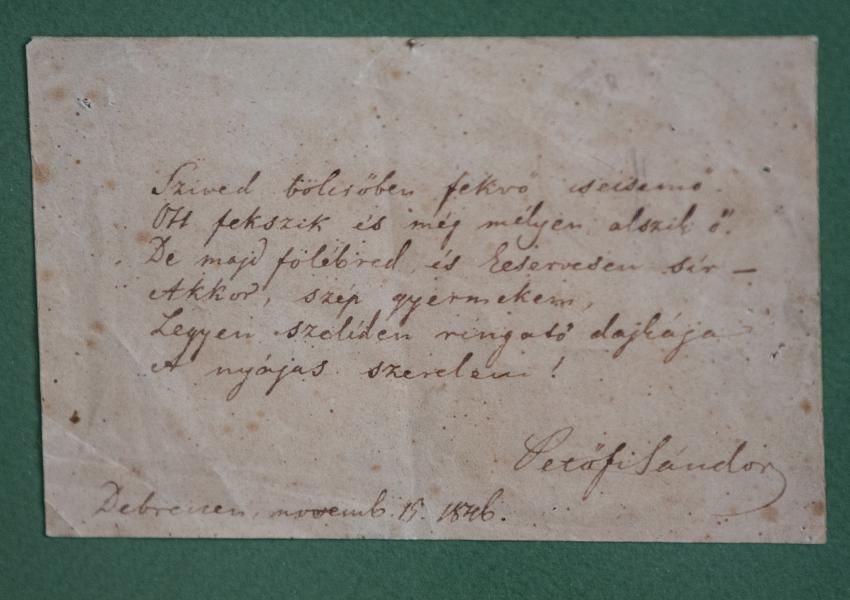 Szived bölcsőben fekvő csecsemő.
Ott fekszik és még mélyen alszik ő.
De majd fölébred, és keservesen sír –
Akkor, szép gyermekem,
Legyen szelíden ringató dajkája
A nyájas szerelem!
Petőfi Sándor
Debrecen, novemb. 15. 1846.